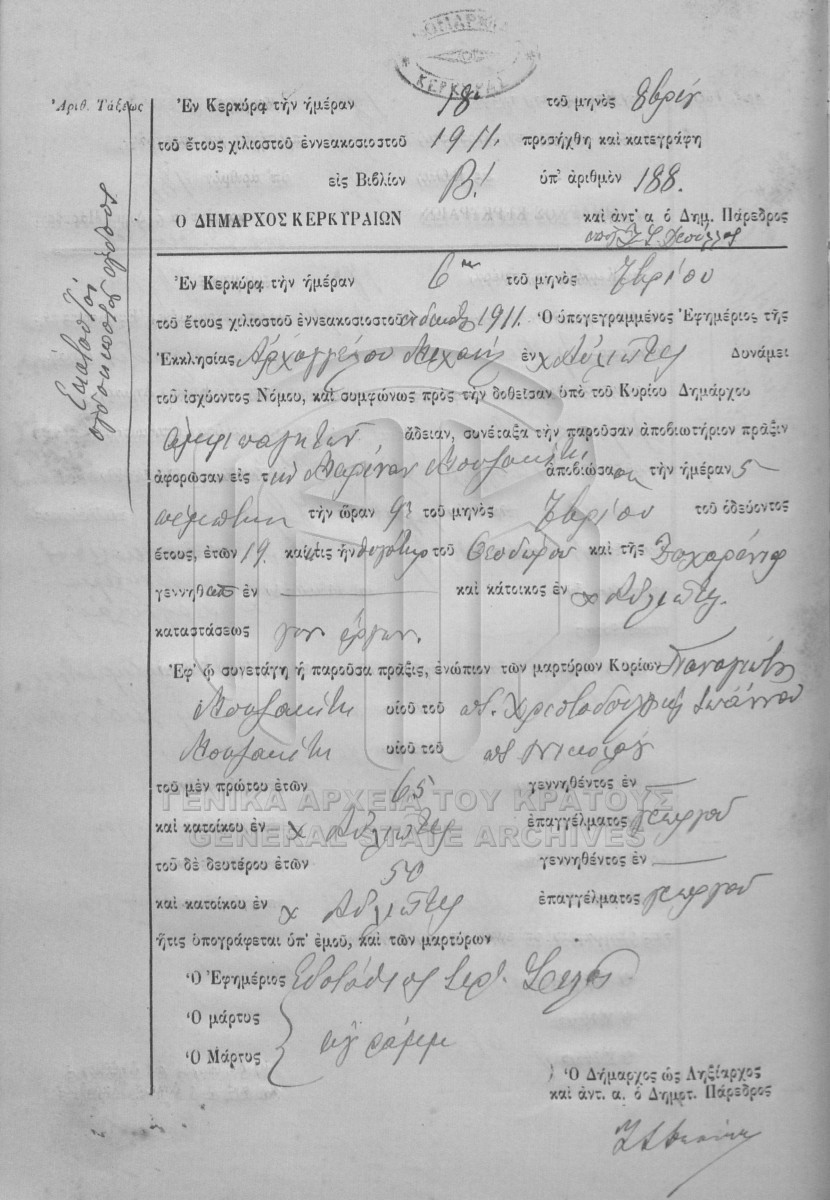 ΚΕΡΚΥΡΑΣ
Ἀριθ. Τάξεως
Ἐν Κερκύρᾳ τὴν ἡμέραν 18 τοῦ μηνὸς 8βρίου
τοῦ ἔτους χιλιοστοῦ ἐννεακοσιοστοῦ 1911. προσήχθη καὶ κατεγράφη
εἰς Βιβλίον Β! ὑπ' ἀριθμὸν 188.
Ὁ ΔΗΜΑΡΧΟΣ ΚΕΡΚΥΡΑΙΩΝ
καὶ ἀντ' α ὁ Δημ. Πάρεδρος
Ἑκατοστὸν
ὀγδοηκοστὸν ὄγδοον
Ἐν Κερκύρᾳ τὴν ἡμέραν 6ην τοῦ μηνὸς 7βρίου
τοῦ ἔτους χιλιοστοῦ ἐννεακοσιοστοῦ ἑνδεκάτου 1911. Ὁ ὑπογεγραμμένος Ἐφημέριος τῆς
Ἐκκλησίας Ἀρχαγγέλου Μιχαὴλ ἐν χ Αὐλιώτες Δυνάμει
τοῦ ἰσχύοντος Νόμου, καὶ συμφώνως πρὸς τὴν δοθεῖσαν ὑπὸ τοῦ Κυρίου Δημάρχου
ἄδειαν, συνέταξα τὴν παροῦσαν ἀποβιωτήριον πρᾶξιν
ἀφορῶσαν εἰς τὴν Μαρίναν Μουζακίτη ἀποβιώσασαν τὴν ἡμέραν 5
πέμπτην τὴν ὥραν 9 τοῦ μηνὸς 7βρίου τοῦ ὁδεύοντος
ἔτους, ἐτῶν 19. καὶ ἥτις ἦν θυγάτηρ τοῦ Θεοδώρου καὶ τῆς
γεννηθ ἐν — καὶ κάτοικος ἐν χ Αὐλιώτες.
καταστάσεως
Ἐφ' ᾧ συνετάγη ἡ παροῦσα πρᾶξις, ἐνώπιον τῶν μαρτύρων Κυρίων Παναγιώτη
Μουζακίτη υἱοῦ τοῦ ποτ. Χριστοδούλου καὶ Ἰωάννου
Μουζακίτη υἱοῦ τοῦ ποτ
τοῦ μὲν πρώτου ἐτῶν 65 γεννηθέντος ἐν —
ΓΕΝΙΚΑ ΑΡΧΕΙΑ ΤΟΥ ΚΡΑΤΟΥΣ
καὶ κατοίκου ἐν χ Αὐλιώτες ἐπαγγέλματος γεωργοῦ
GENERAL STATE ARCHIVES
τοῦ δὲ δευτέρου ἐτῶν 50 γεννηθέντος ἐν —
καὶ κατοίκου ἐν χ Αὐλιώτες ἐπαγγέλματος γεωργοῦ
ἥτις ὑπογράφεται ὑπ' ἐμοῦ, καὶ τῶν μαρτύρων
Ὁ Ἐφημέριος Εὐστάθιος ἱερ.
Ὁ μάρτυς
ἀγράμμ
Ὁ Μάρτυς
Ὁ Δήμαρχος ὡς Ληξίαρχος
καὶ ἀντ. α. ὁ Δημοτ. Πάρεδρος